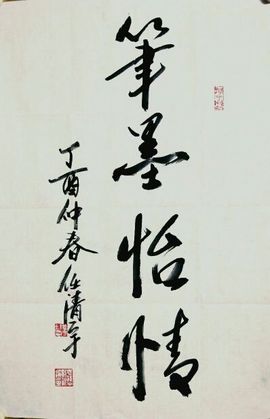 筆墨怡情
丁酉仲春任清平